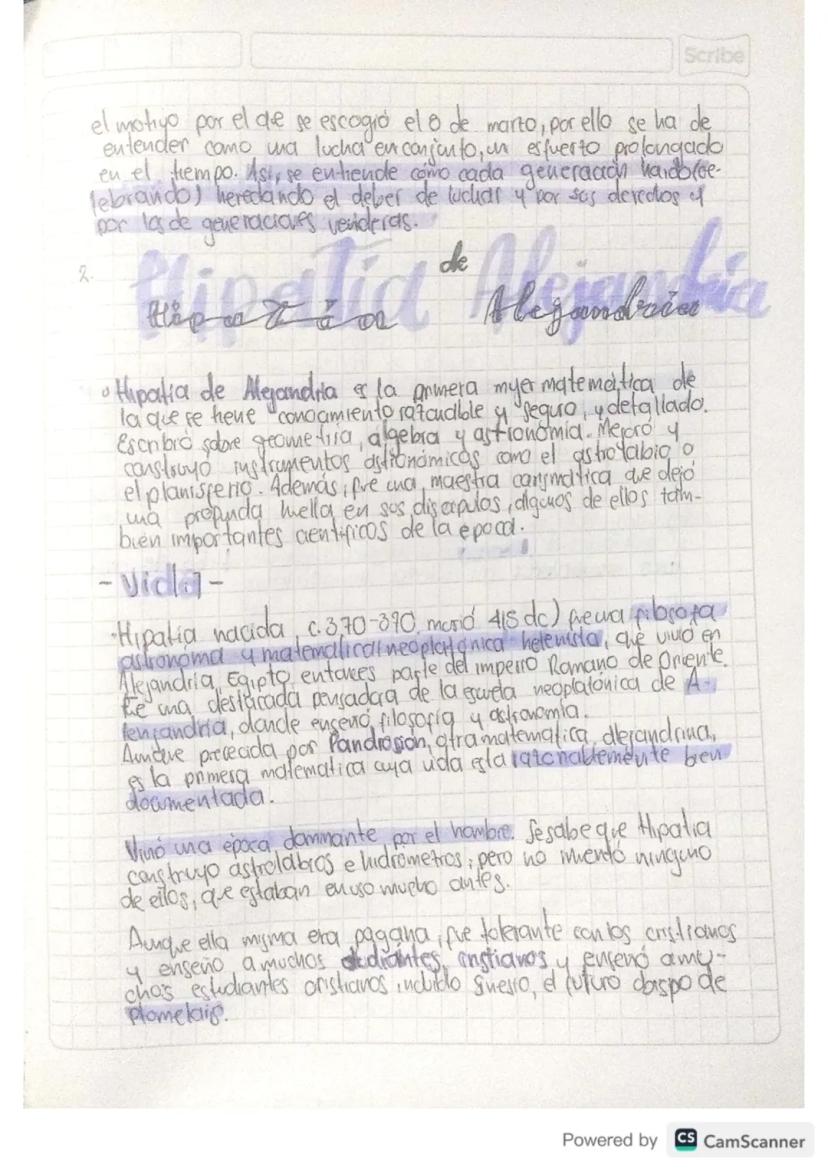 Scribe
el motivo por el que se escogió el 8 de marzo, por ello se ha de
entender como una lucha en conjunto, un esfuerzo prolongado
en el tiempo. Así, se entiende cómo cada generación ha ido (ce-
lebrando) heredando el deber de luchar y por sus derechos y
por los de generaciones venideras.
2. Hipatia de Alejandria
Hipatia Alejandria
Hipatia de Alejandria es la primera mujer matemática de
la que se tiene conocimiento razaudible y seguro, y detallado.
Escribió sobre geometria, álgebra y astronomía. Mejoró y
construyo instrumentos astronómicos como el astrolabio o
el planisferio. Además, fue una maestra carismática que dejó
una profunda huella en sus discapulos, algunos de ellos tam-
bién importantes cientificos de la epoca.
- Vida -
Hipatia nacida c. 370-390, murió 415 dc) fue una filosofa
astronoma y matematica (neoplatónica helenista, que vivió en
Alejandria, Egipto, entonces parte del imperio Romano de Oriente.
Fue una destacada pensadora de la escuela neoplatónica de A-
lenjandria, donde enseñó filosofia y astronomia.
Aunque prececida por Pandrosion, otra matematica, alejandrina,
es la primera matematica cuya vida esta razonablemente bien
documentada.
Vivió una época dominante por el hombre. Se sabe que Hipatia
construyo astrolabios e hidrómetros, pero no inventó ninguno
de ellos, que estaban en uso mucho antes.
Aunque ella misma era pagana, fue tolerante con los cristianos
y enseño a muchos estudiantes, cristianos y enseñó a mu-
chos estudiantes cristianos incluido el futuro de
Powered by CS CamScanner